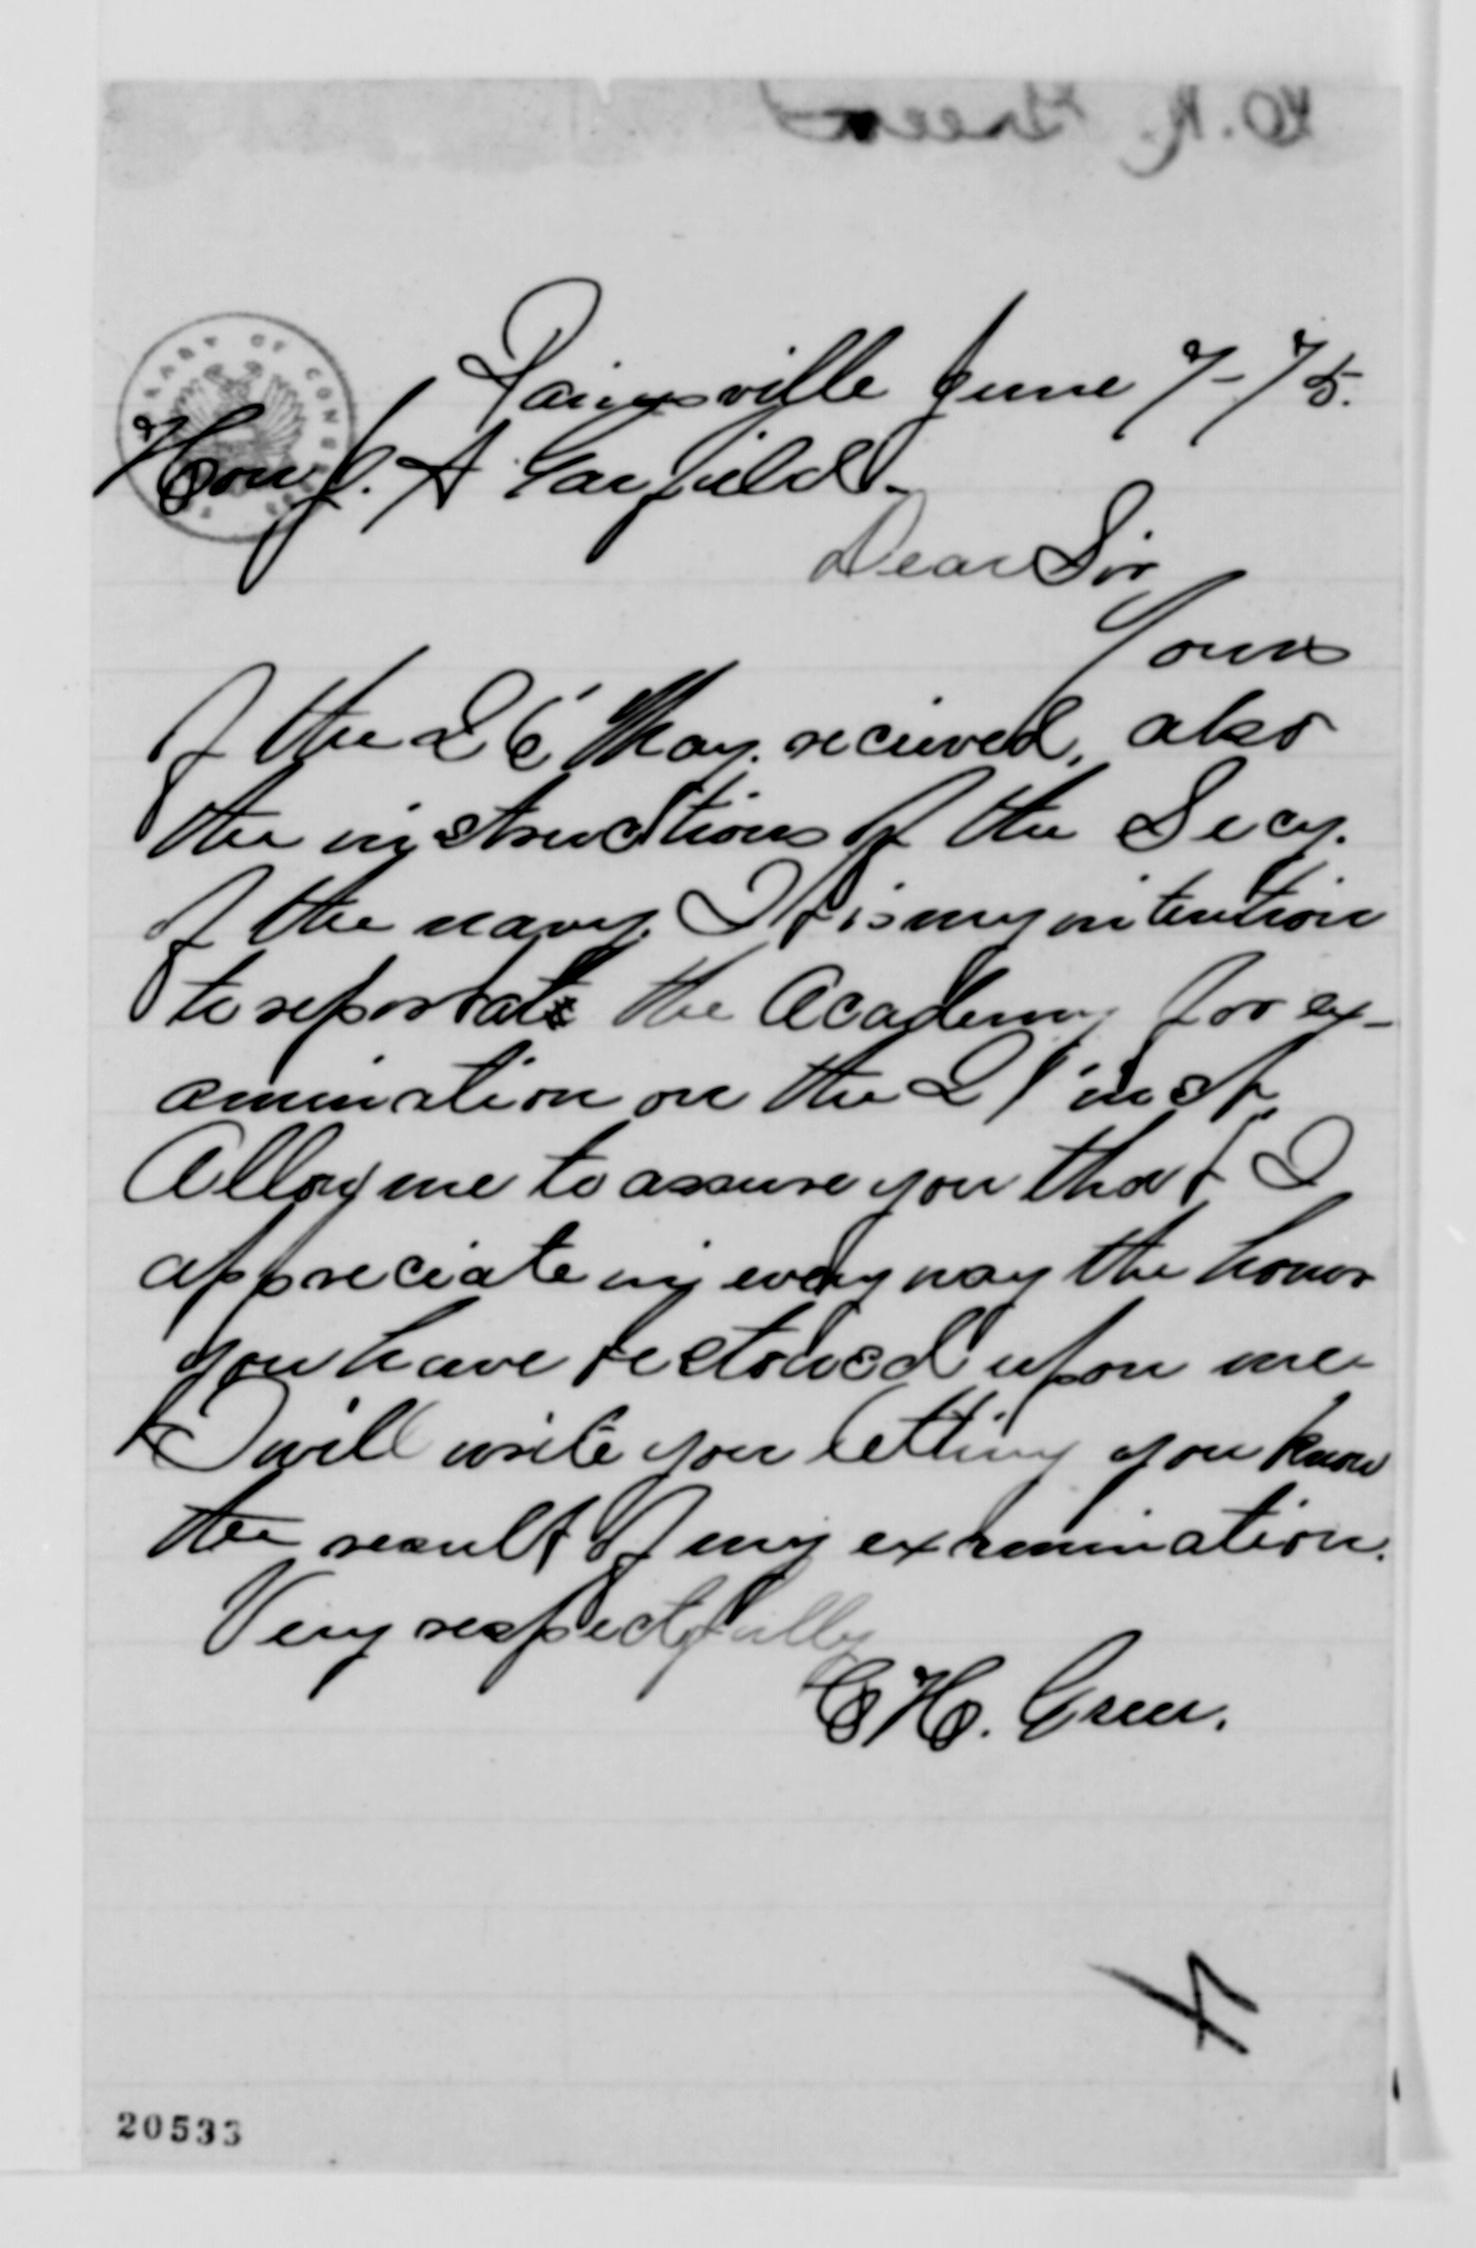 Painesville June 7-75.
Hon J. A Garfield.
Dear Sir
Yours
of the 26' May. recieved, also
the instructions of the Secy.
of the navy. It is my intention
to report at the Academy for ex-
amination on the 21' inst.
Allow me to assure you that I
appreciate in every way the honor
you have bestowed upon me.
I will write you letting you know
the result of my examination.
Very respectfully
C H. Green.
20533